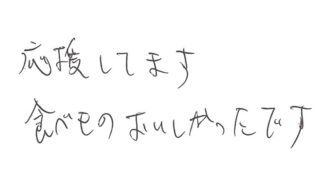 応援してます
食べもの おいしかったです